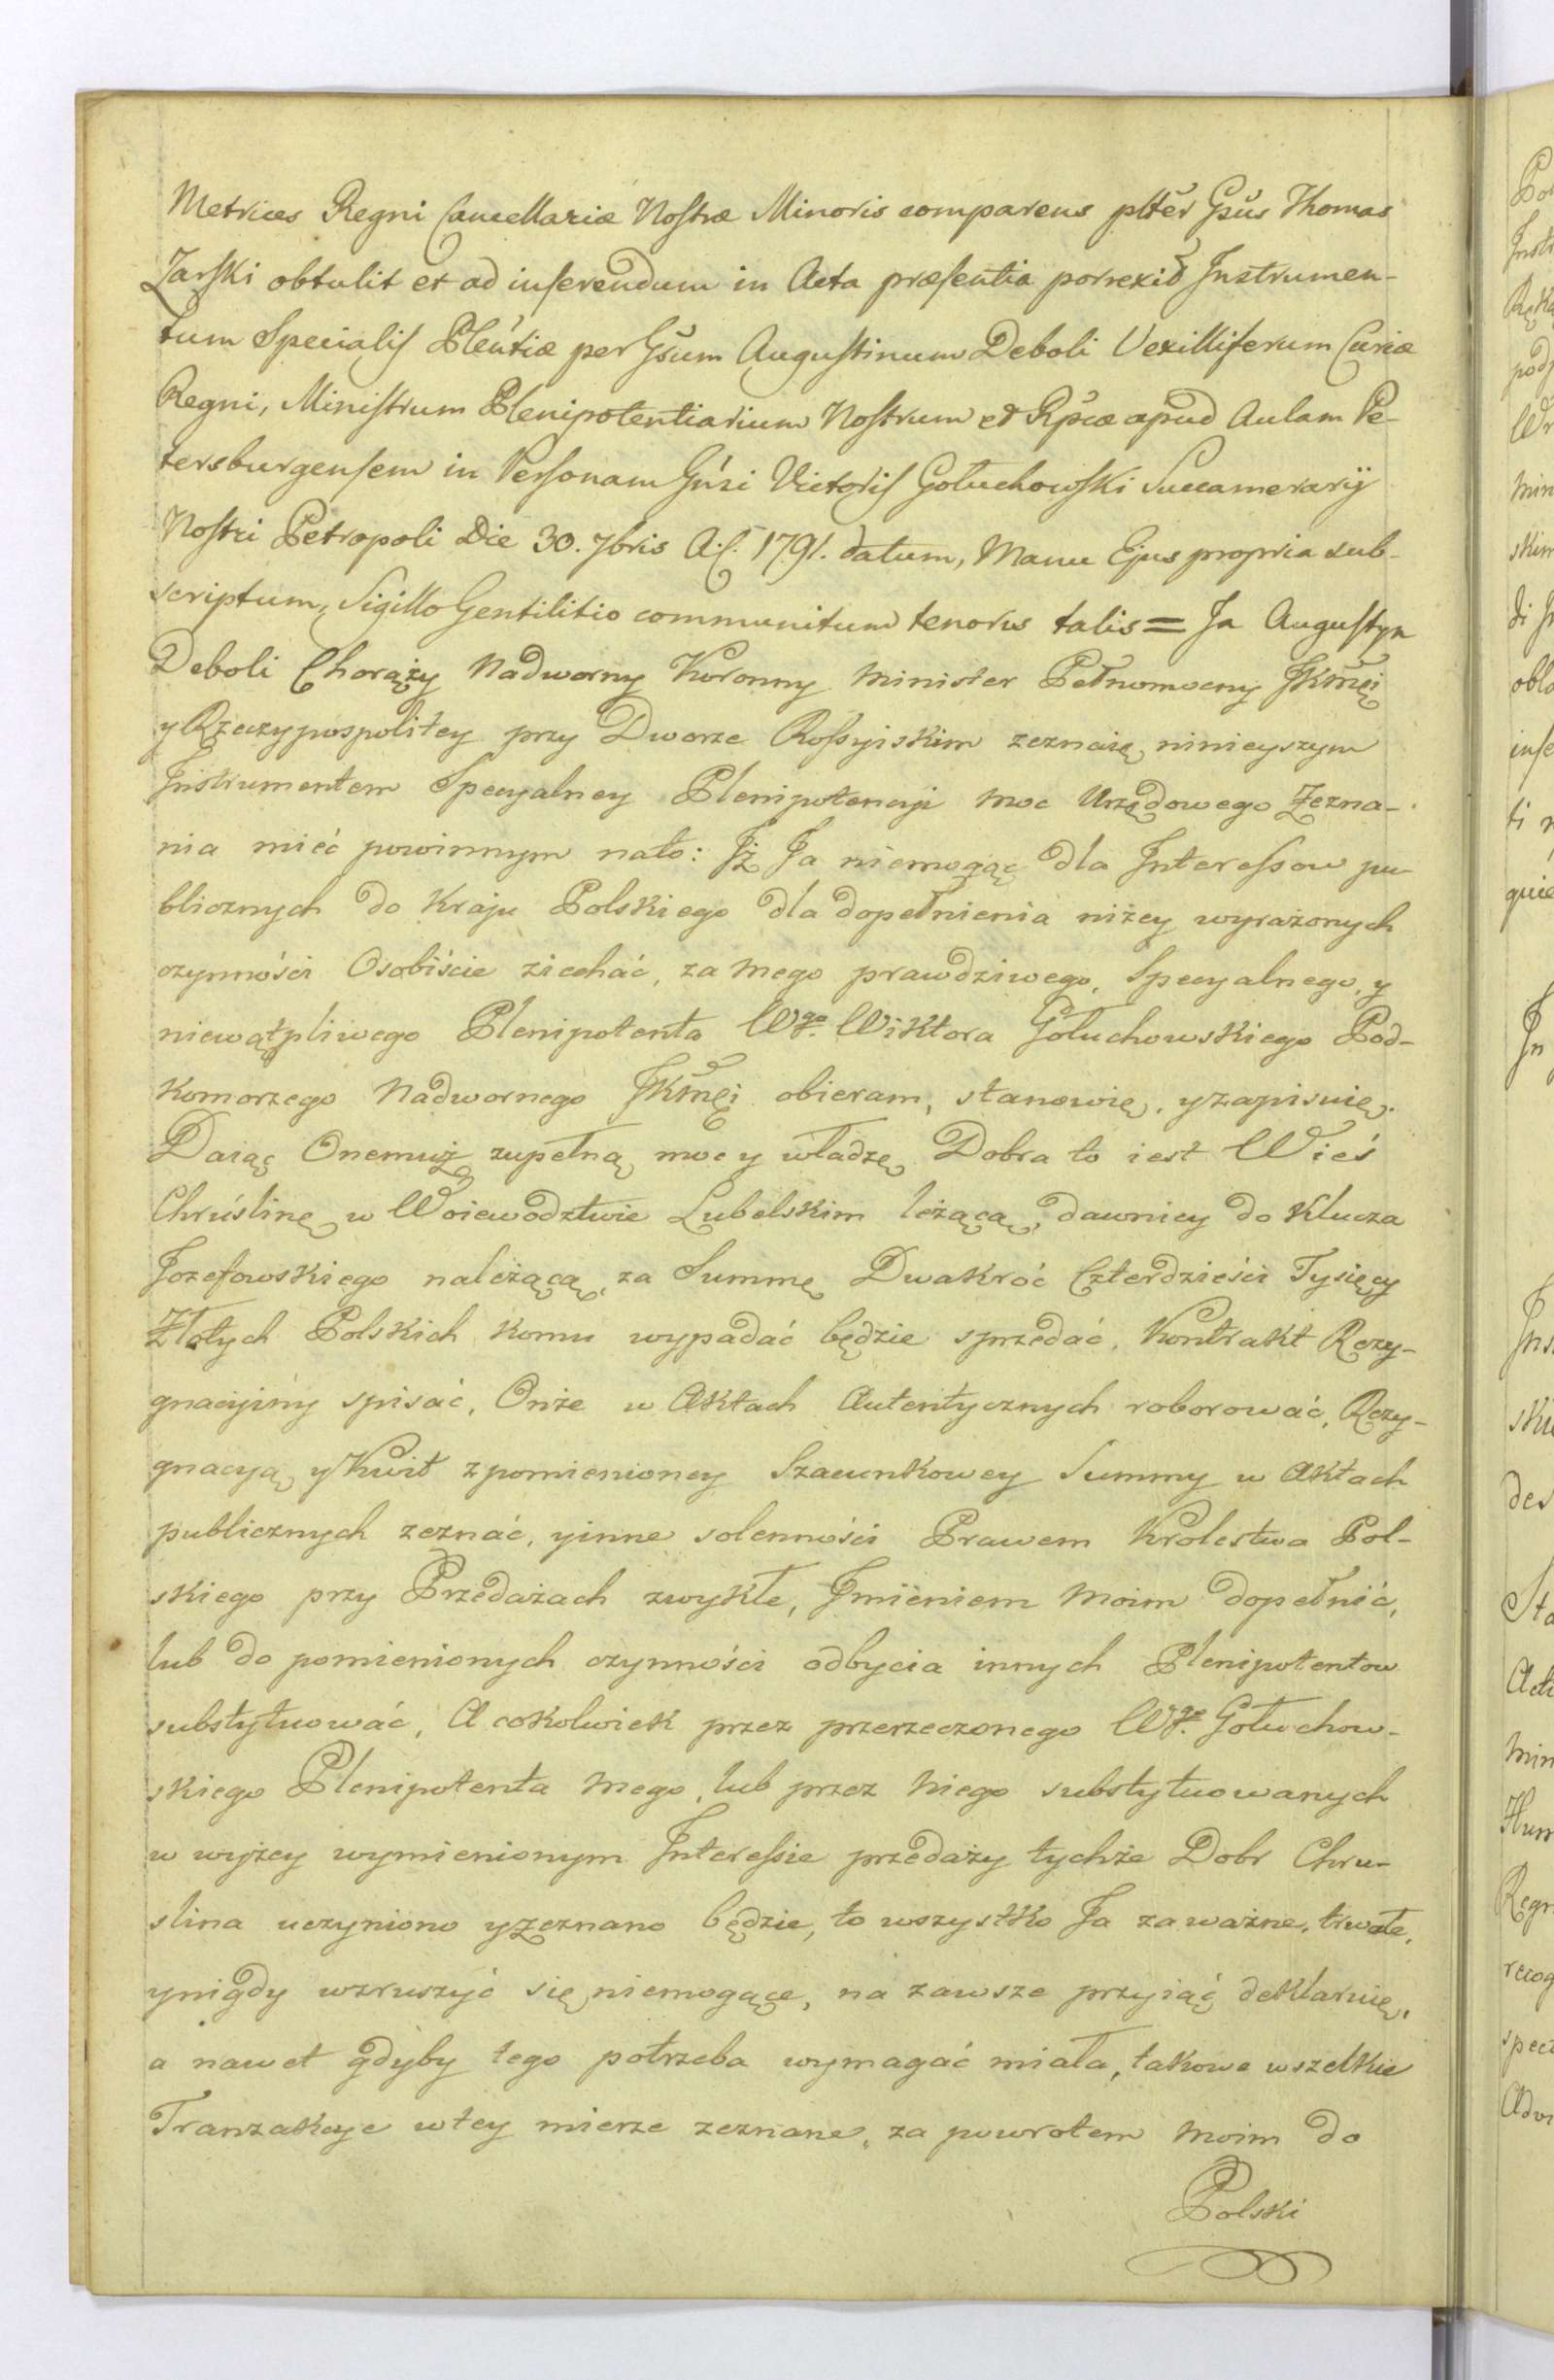 Metrices Regni Cancellariæ Nostræ Minoris comparens plter Gsus Thomas
Zarski obtulit et ad inserendum in Acta præsentia porrexit Instrumen-
tum Specialis Plentiæ per Gsum Augustinum Deboli Vexilliferum Curiæ
Regni, Ministrum Plenipotentiarium Nostrum et Rpcæ apud Aulam Pe-
tersburgensem in Personam Gnsi Victoris Gołuchowski Succamerarij
Nostri Petropoli Die 30. 7bris A. C. 1791. datum, Manu Ejus propria sub-
scriptum, Sigillo Gentilitio communitum tenoris talis = Ja Augustyn
Deboli Chorąży Nadworny Koronny Minister Pełnomocny JKMci
y Rzeczypospolitey przy Dworze Rossyiskim zeznaię ninieyszym
Instrumentem Specyalney Plenipotencyi moc Urzędowego Zezna-
nia mieć powinnym nato: Iż Ja niemogąc dla Interessow pu-
blicznych do Kraju Polskiego dla dopełnienia niżey wyrażonych
czynności Osobiście ziechać, za mego prawdziwego, Specyalnego, y
niewątpliwego Plenipotenta Wgo. Wiktora Gołuchowskiego Pod-
komorzego Nadwornego JKMci obieram, stanowię, y zapisuię.
Daiąc Onemuż zupełną moc y władzę Dobra to iest Wieś
Chruślinę w Woiewodztwie Lubelskim leżącą, dawniey do Klucza
Jozefowskiego należącą, za Summę Dwakroć Czterdzieści Tysięcy
Złotych Polskich komu wypadać będzie sprzedać, Kontrakt Rezy-
gnacyiny spisać, Onże w Aktach Autentycznych roborować, Rezy-
gnacyą y Kwit z pomienioney Szacunkowey Summy w Aktach
publicznych zeznać, y inne solenności Prawem Krolestwa Pol-
skiego przy Przedażach zwykłe, Imieniem moim dopełnić,
lub do pomienionych czynności odbycia innych Plenipotentow
substytuować, A cokolwiek przez przerzeczonego Wgo. Gołuchow-
skiego Plenipotenta mego, lub przez niego substytuowanych
w wyżey wymienionym Interessie przedaży tychże Dobr Chru-
slina uczyniono y zeznano będzie, to wszystko Ja za ważne, trwałe,
y nigdy wzruszyć się niemogące, na zawsze przyiąć deklaruię,
a nawet gdyby tego potrzeba wymagać miała, takowe wszelkie
Tranzakcye w tey mierze zeznane, za powrotem moim do
Polski